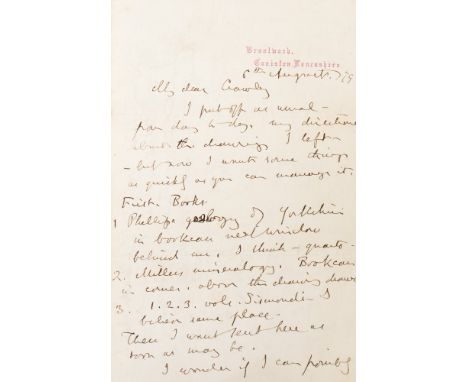 Brantwood,
Coniston, Lancashire.
6th August. 75
My dear Crawley
I put off as usual -
from day to day. my directions
about the drawings I left
- but now I want some things
as quickly as you can manage it.
First. Books
1 Phillips geology of Yorkshire
in bookcase next window
behind me. I think - quarto -
2. Millers mineralogy. Bookcase
in corner. above the drawing drawers
3. 1.2.3. vols. Sismondi - I
believe same place -
These I want sent here as
soon as may be.
I wonder if I can possibly